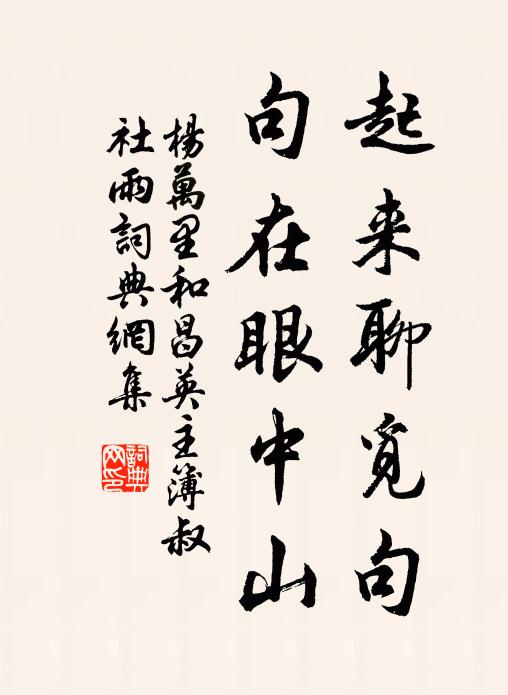 起来聊覓句
句在眼中山
楊萬里和昌英主簿叔
社雨詞典網集
詞典網印